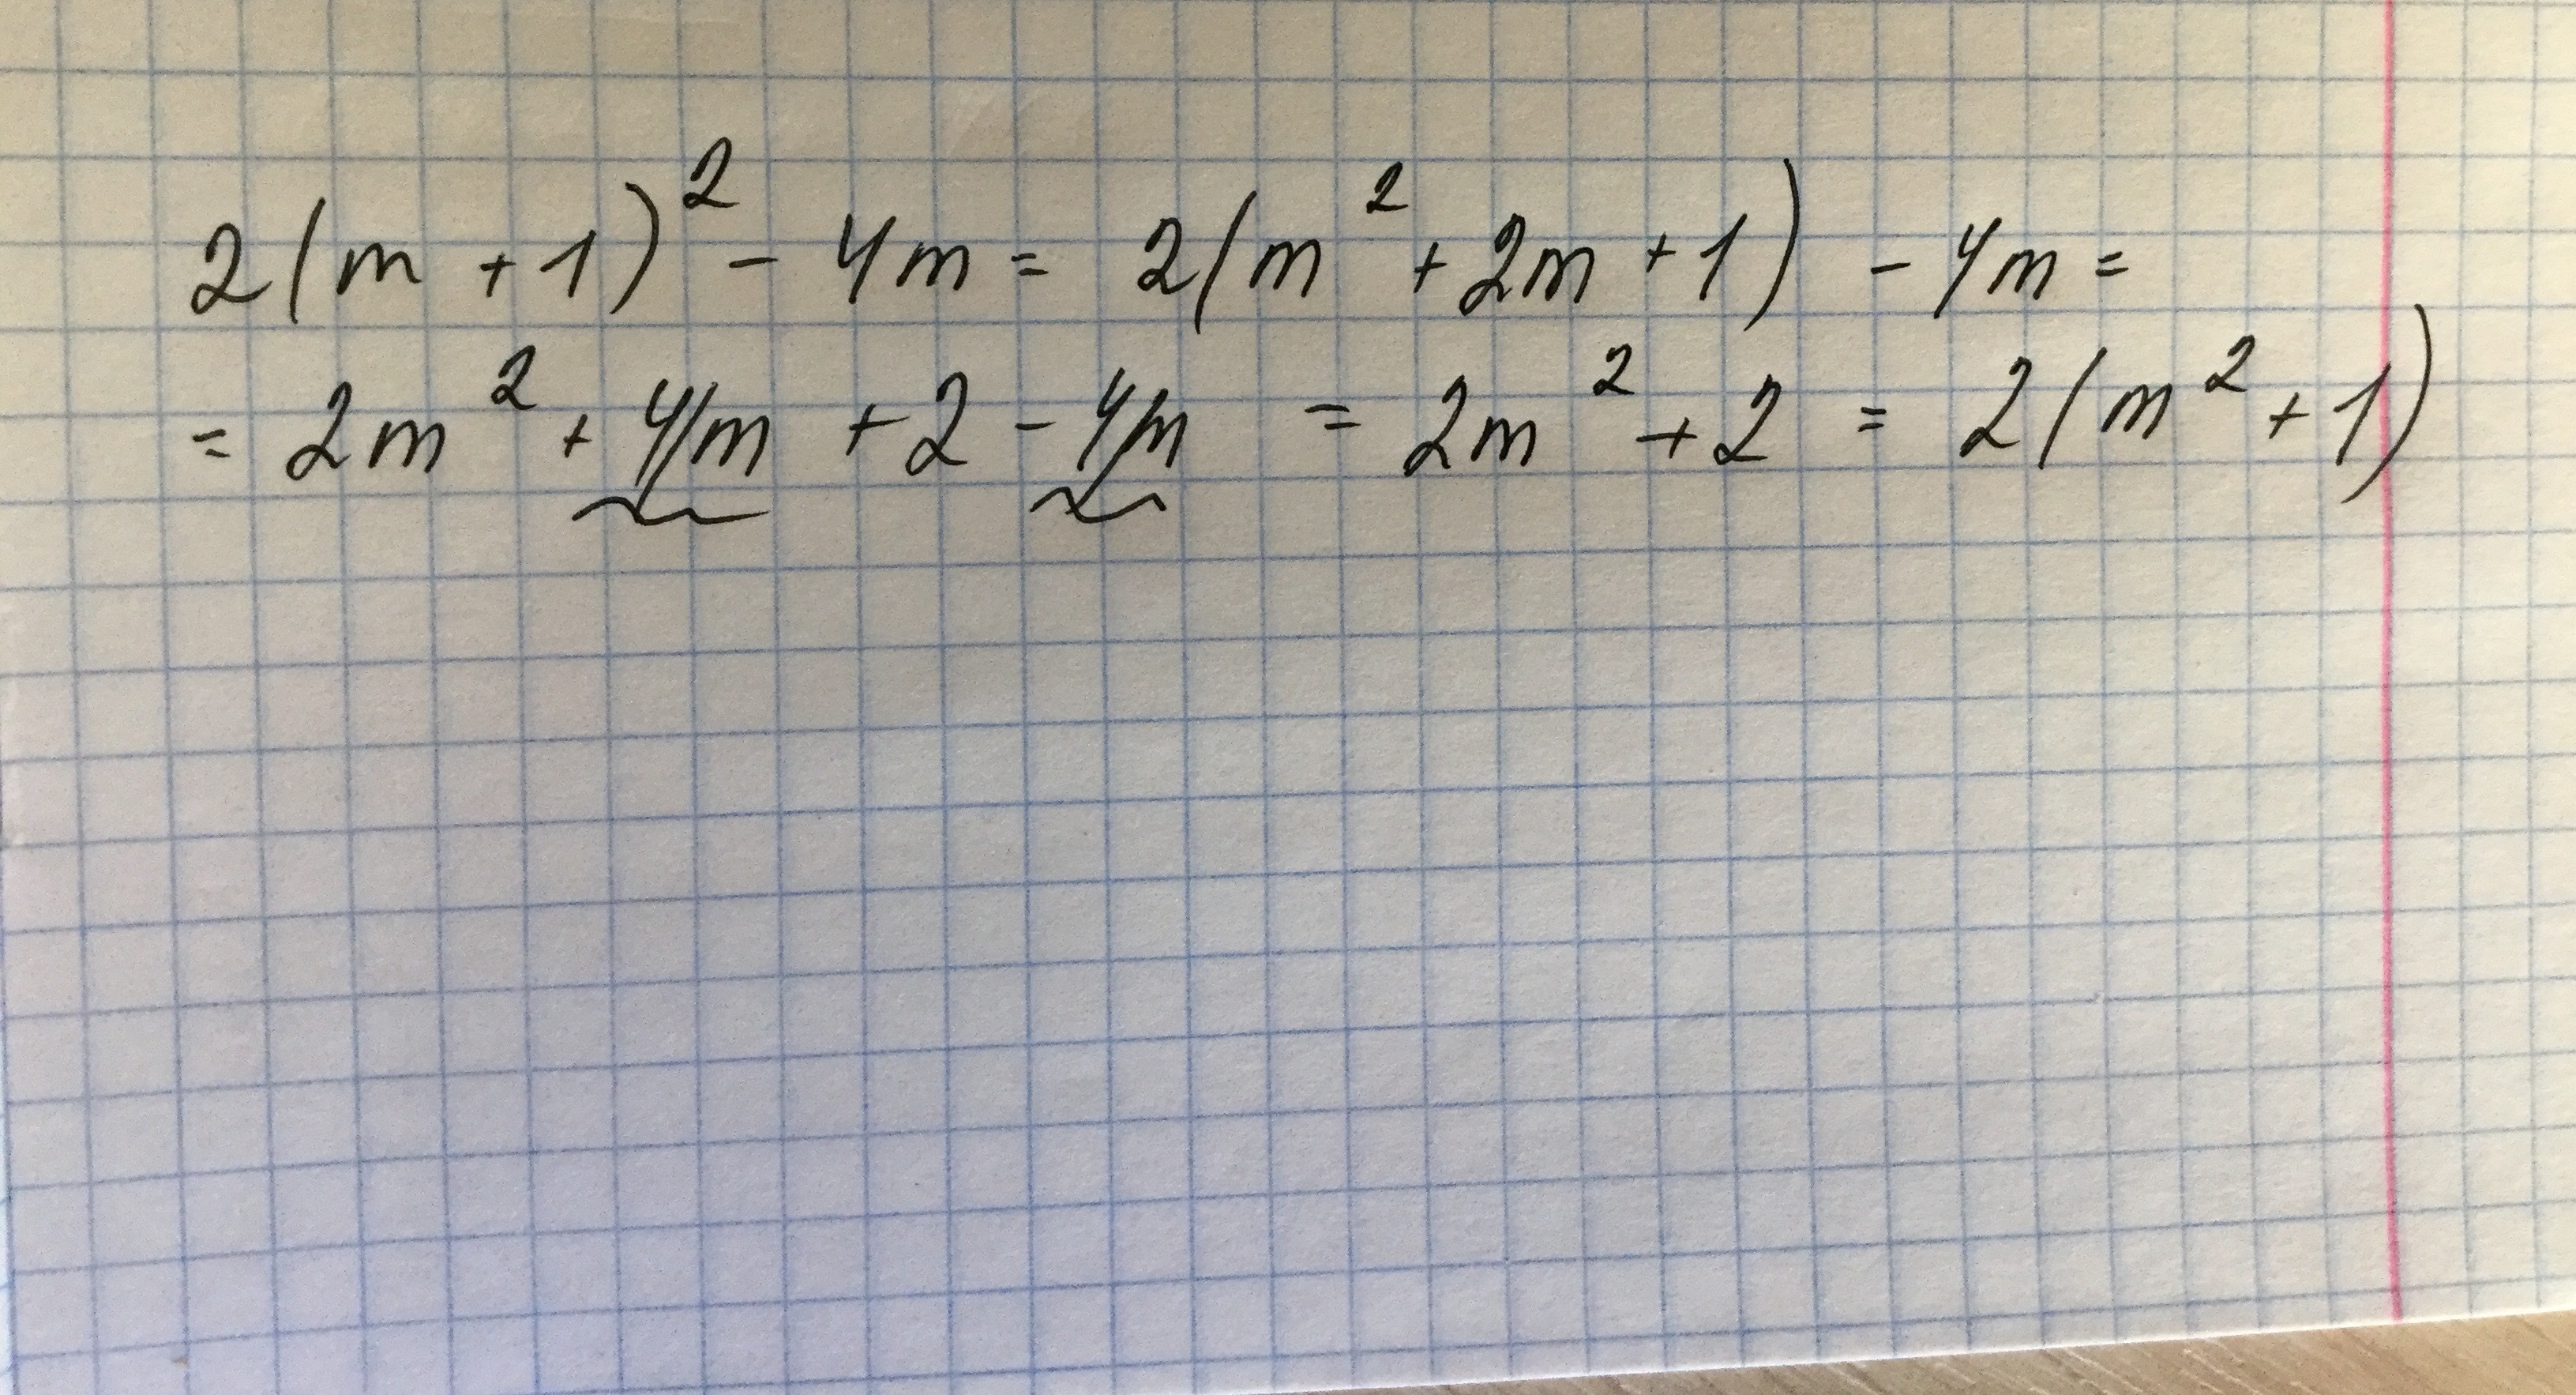 2(m+1)² - 4m = 2(m² + 2m + 1) - 4m =
= 2m² + 4m + 2 - 4m = 2m² + 2 = 2(m² + 1)